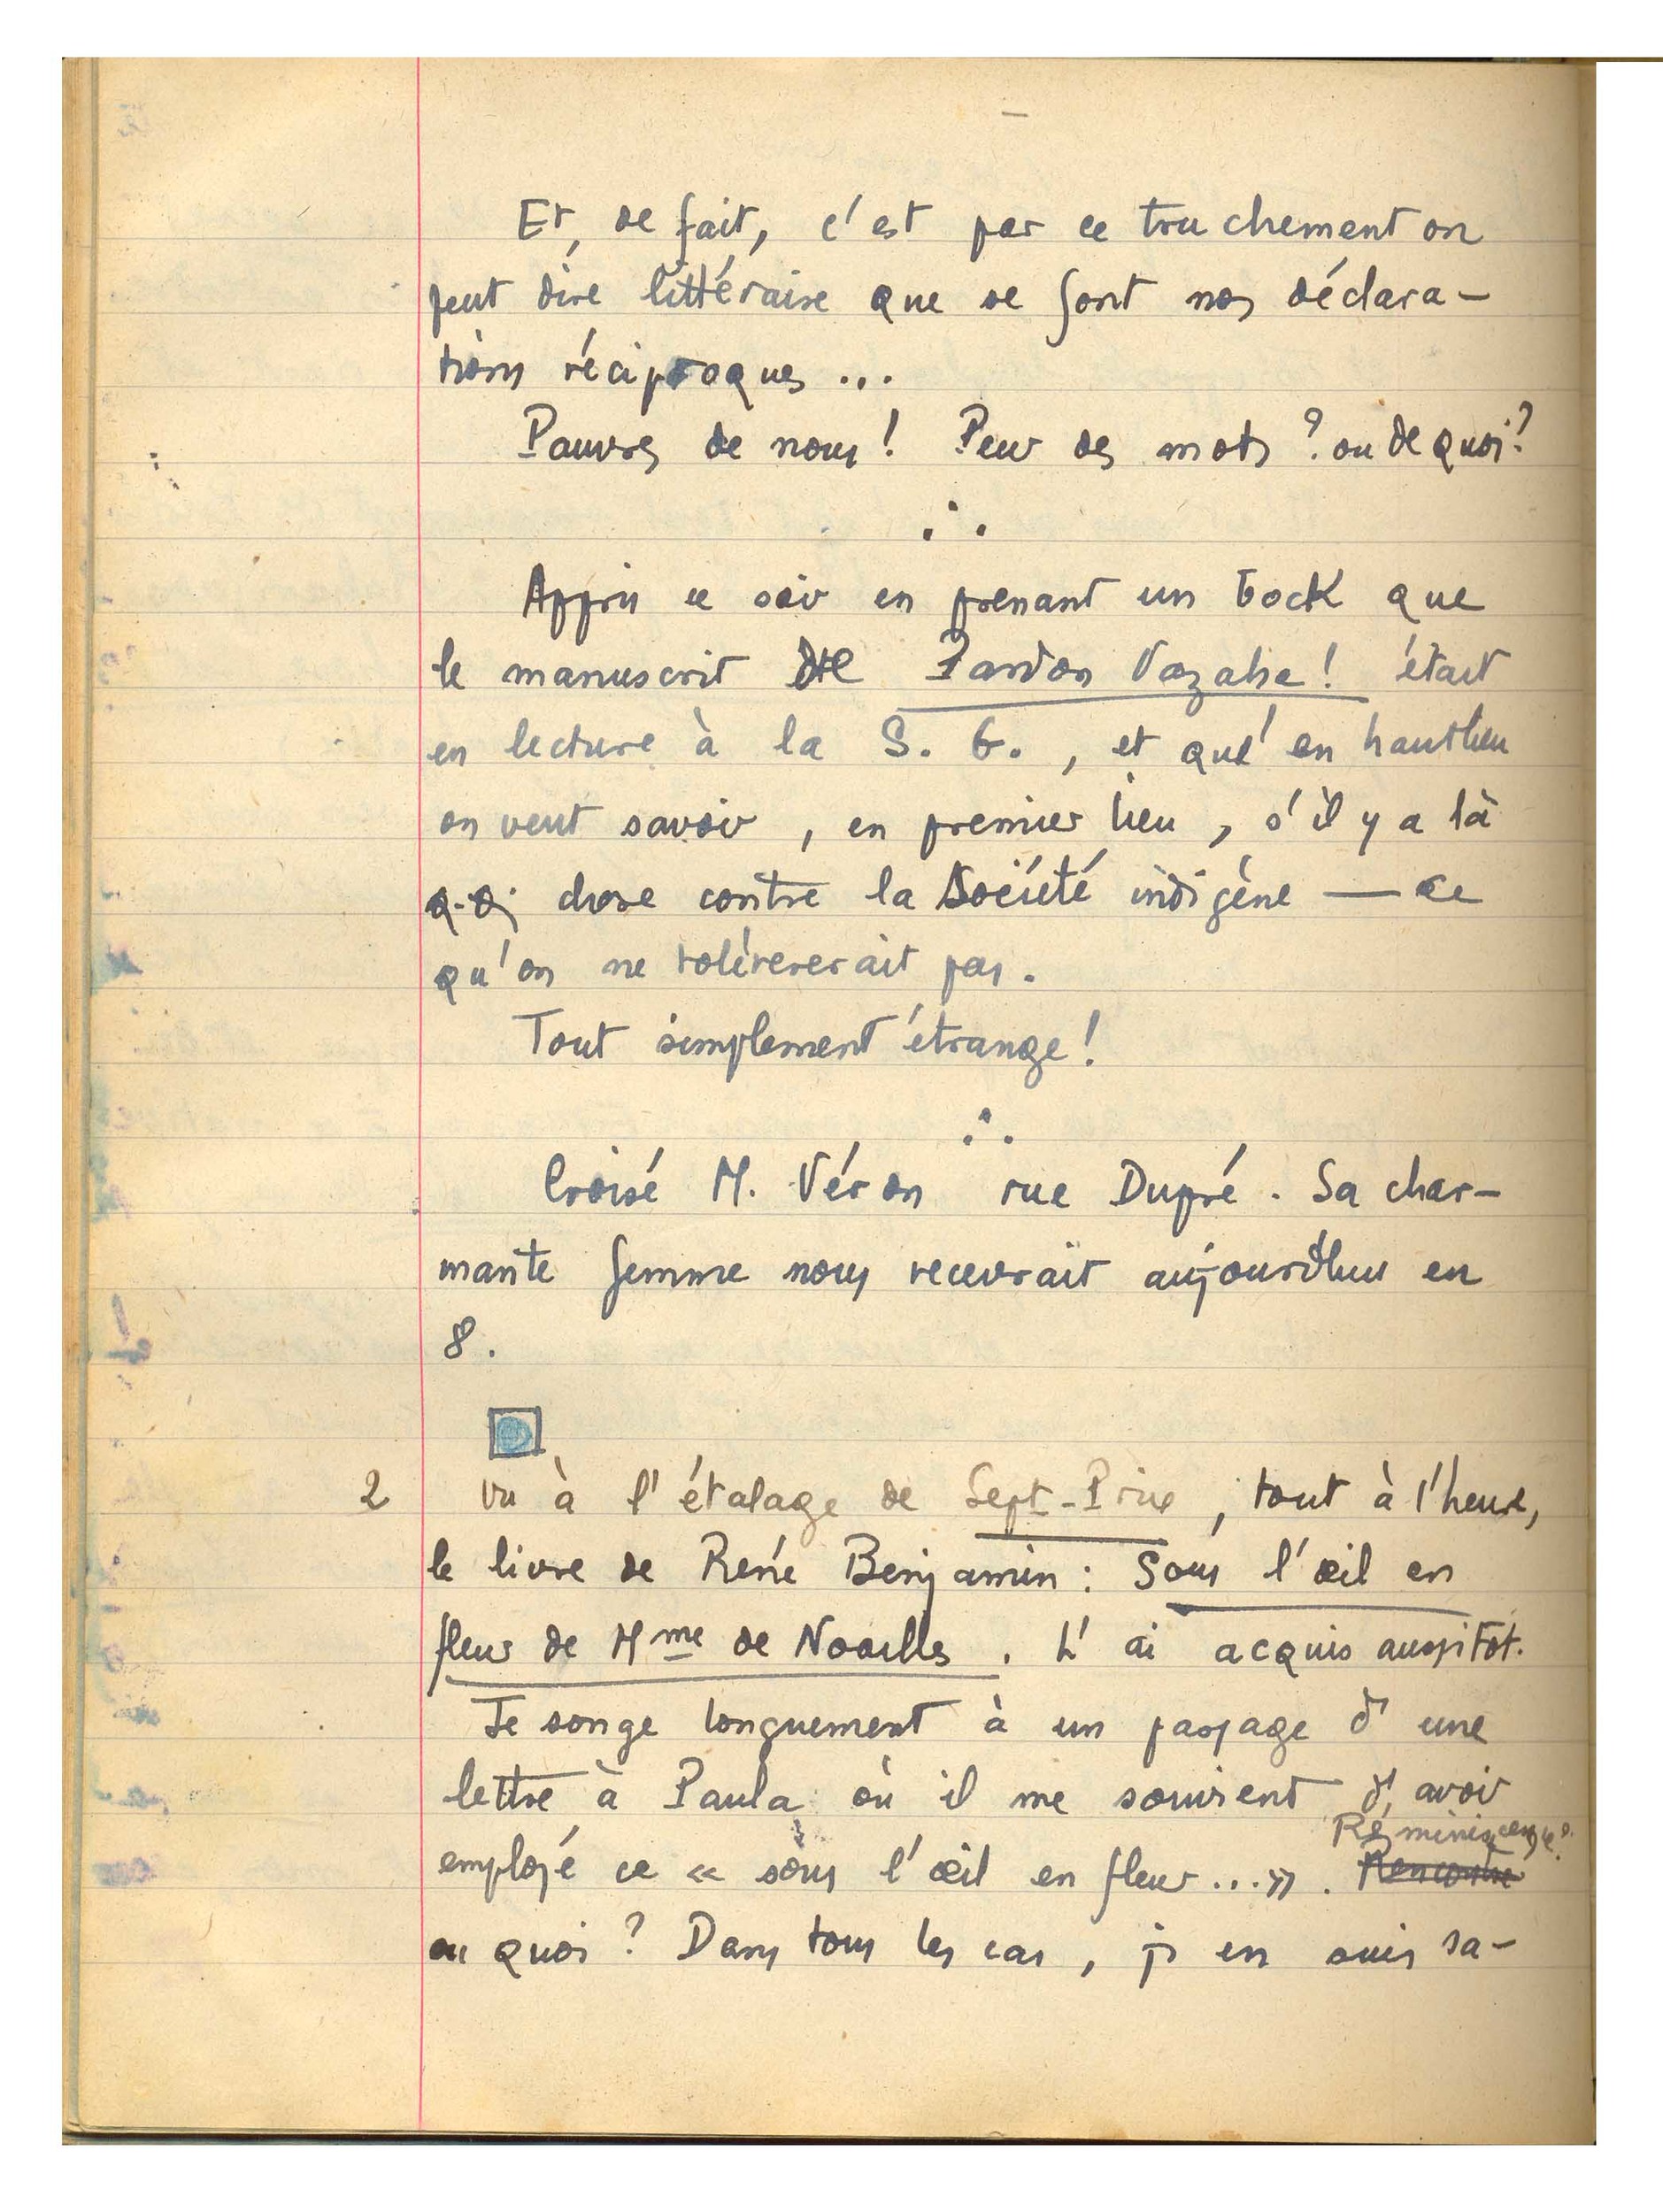 Et, de fait, c'est par ce truchement on
peut dire littéraire que se font nos déclara-
tions réciproques ...
Pauvres de nous ! Peur des mots ? ou de quoi ?
∴
Appris ce soir en prenant un bock que
le manuscrit de Pardon Vazaha ! était
en lecture à la S. G. , et que en haut lieu
on veut savoir , en premier lieu , s'il y a là
q.q. chose contre la Société indigène — ce
qu'on ne tolérererait pas .
Tout simplement étrange !
∴
Croisé M. Véron rue Dupré . Sa char-
mante femme nous recevrait aujourd'hui en
8 .
2 Vu à l'étalage de Sept-Prix , tout à l'heure,
le livre de René Benjamin : Sous l'œil en
fleur de Mme de Noailles . L'ai acquis aussitôt.
Je songe longuement à un passage d'une
lettre à Paula où il me souvient d'avoir
Réminiscence
employé ce « sous l'œil en fleur ... » . Rencontre
ou quoi ? Dans tous les cas , j'en suis sa-